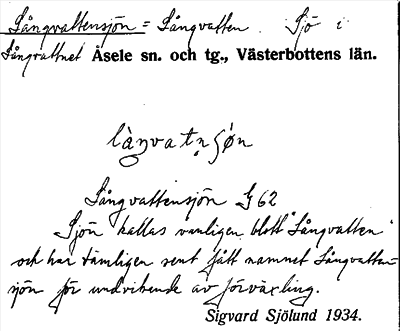 Långvattensjön = Långvatten. Sjö i
Långvattnet Åsele sn. och tg., Västerbottens län.
làŋvatn̥ʃö́n
Långvattensjön G 62
Sjön kallas vanligen blott "Långvatten"
och har tämligen sent fått namnet Långvatten-
sjön för undvikande av förväxling.
Sigvard Sjölund 1934.